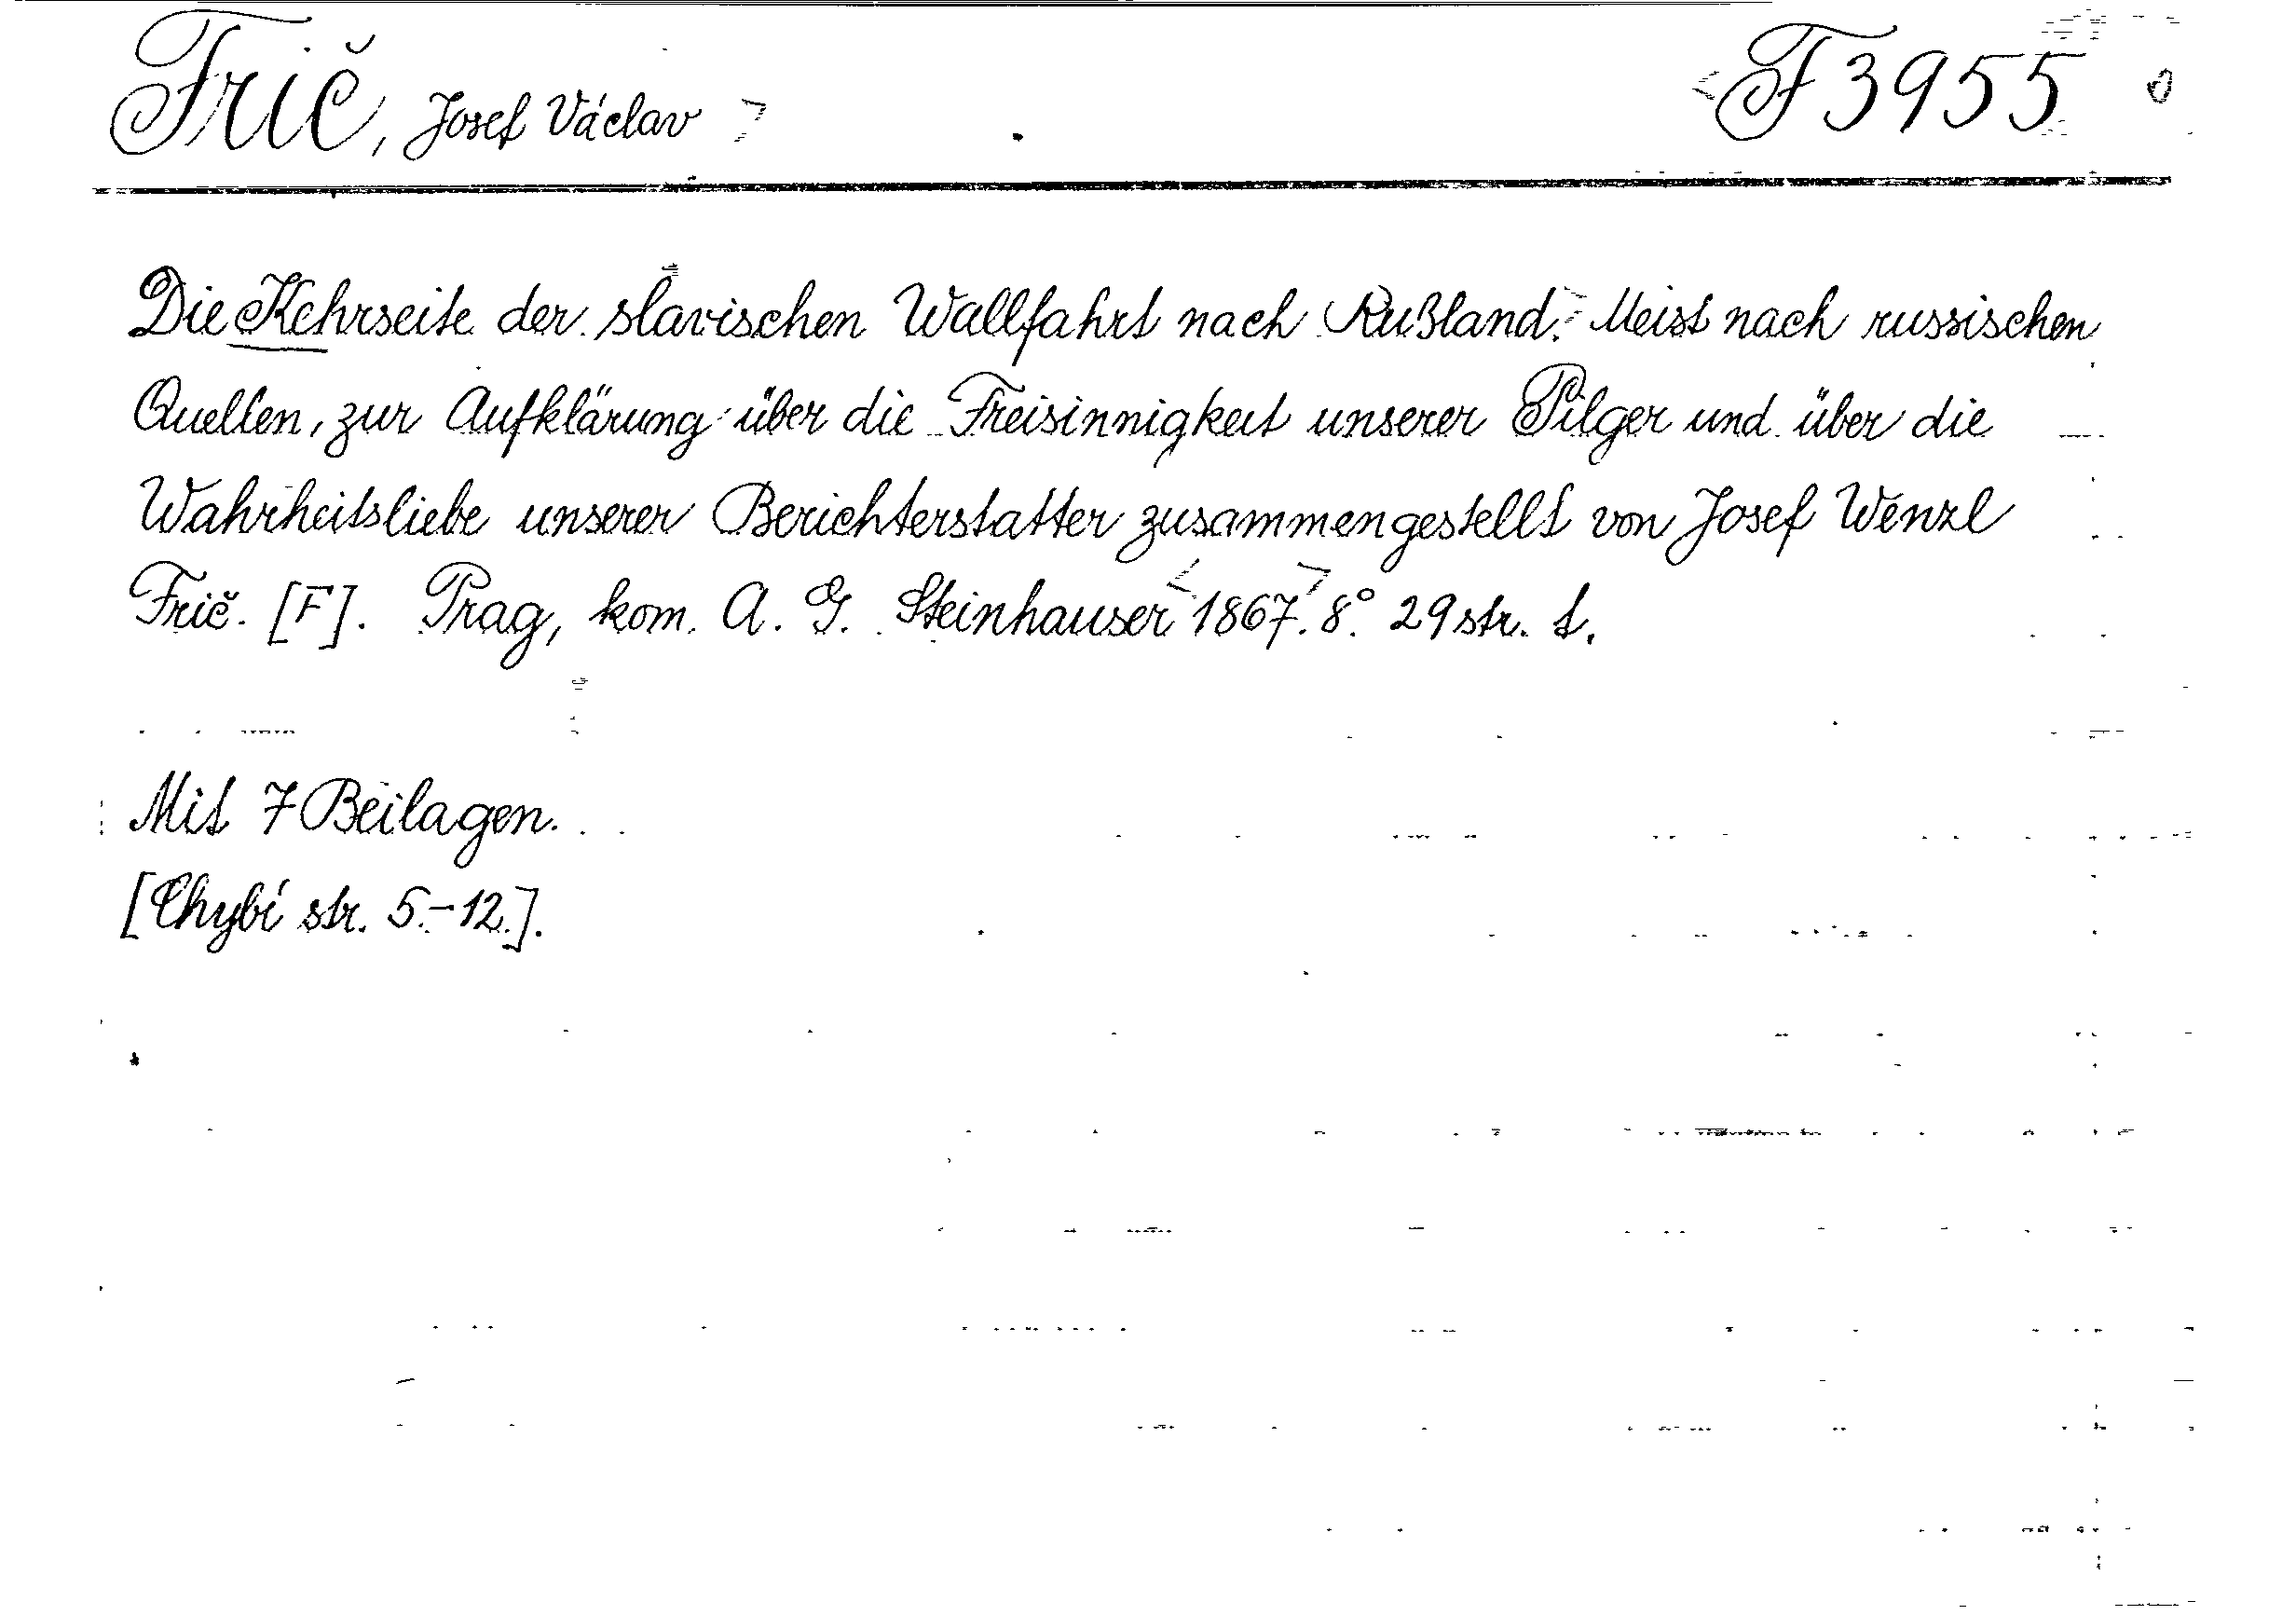 Frič, Josef Václav
F 3955
Die Kehrseite der slavischen Wallfahrt nach Rußland. Meist nach russischen
Quellen, zur Aufklärung über die Freisinnigkeit unserer Pilger und über die
Wahrheitsliebe unserer Berichterstatter zusammengestellt von Josef Wenzl
Frič. [F]. Prag, kom. A. G. Steinhauser 1867. 8.° 29 str. t.
Mit 7 Beilagen.
[Chybí str. 5.-12.].